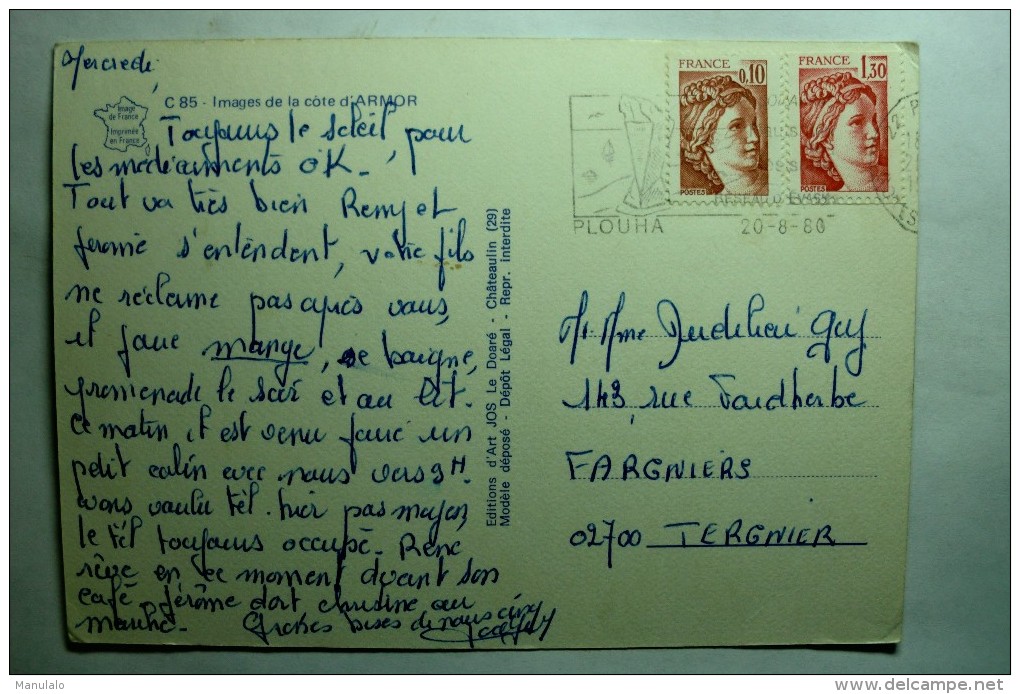 Mercredi
C 85 - Images de la côte d'ARMOR
Image
de France
Imprimée
en France
Toujours le soleil, pour
les médicaments OK -
Tout va très bien Remy et
Jerome s'entendent, votre fils
ne réclame pas après vous,
il joue mange, se baigne,
promenade le soir et au lit.
Ce matin il est venu faire un
petit calin avec nous vers 9H.
avons voulu tél. hier pas moyen,
le tél toujours occupé - René
rêve en ce moment devant son
café, Jérôme dort cuisine au
menu - Grosses bises de nous cinq
Editions d'Art JOS Le Doaré - Châteaulin (29)
Modèle déposé - Dépôt Légal - Repr. interdite
FRANCE
0,10
POSTES
FRANCE
1,30
POSTES
PLOUHA
20-8-80
M. Mme Guy
143, rue Faidherbe
FARGNIERS
02700 TERGNIER
Manulalo
delcampe.net